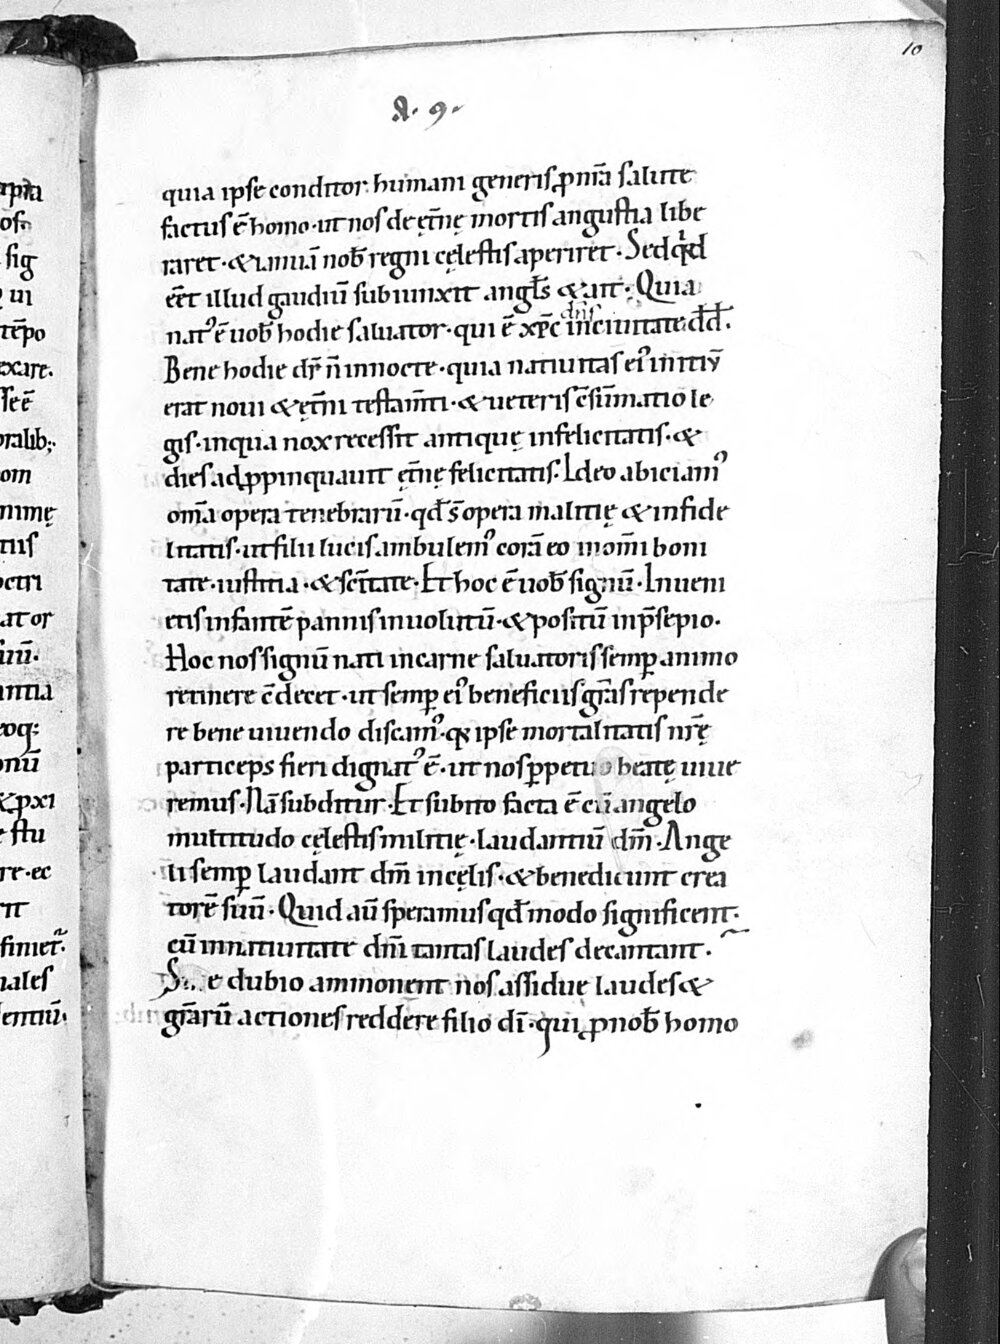 10
A. 9.
quia ipse conditor humani generis ꝓ nr̄a salute
factus ē homo · ut nos de et̄nę mortis angustia libe
raret · & ianuā nob̄ regni cęlestis aperiret · Sed qͥd
eēt illud gaudiū subiunxit angl̄s & ait · Quia
natꝰ ē uob̄ hodie saluator · qui ē xp̄c dn̄s in ciuitate dd̄.
Bene hodie dr̄ n̄ in nocte · quia natiuitas eiꝰ initiū
erat noui & et̄ni testam̄ti · & ueteris c̄sūmatio le
gis · in qua nox recessit antiquę infelicitatis · &
dies adꝓpinquauit et̄nę felicitatis. Ideo abiciamꝰ
om̄a opera tenebrarū · qd̄ s̄ opera malitię & infide
litatis · ut filii lucis ambulemꝰ corā eo in om̄i boni
tate · iustitia · & sc̄itate · Et hoc ē uob̄ signū · Inueni
etis infantē pannis inuolutū · & positū in p̄sepio.
Hoc nos signū nati in carne saluatoris semꝑ animo
retinere c̄decet · ut semꝑ eiꝰ beneficiis gr̄as repende
re bene uiuendo discamꝰ · qͥ ipse mortalitatis nr̄ę
particeps fieri dignatꝰ ē · ut nos ꝑpetuo beatę uiue
remus · Nā subditur · Et subito facta ē cū angelo
multitudo cęlestis militię · laudantiū dm̄ · Ange
li semꝑ laudant dm̄ in cęlis · & benedicunt crea
torē suū · Quid aū speramus qd̄ modo significent ·
cū in natiuitate dm̄ tantas laudes decantant ·
S e dubio ammonent nos assidue laudes &
gr̄arū actiones reddere filio dī · qui ꝓ nob̄ homo